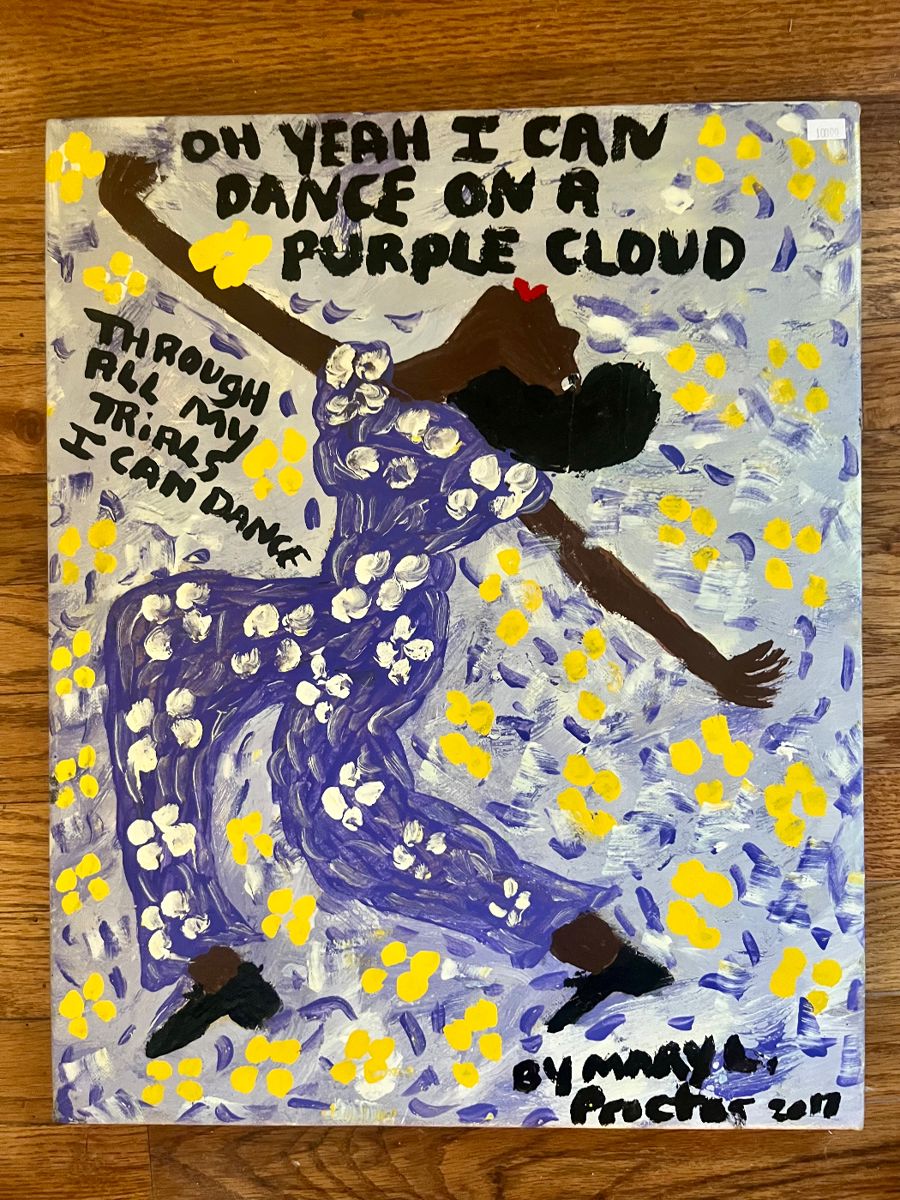 OH YEAH I CAN
DANCE ON A
PURPLE CLOUD
THROUGH
ALL MY
TRiALS
I CAN DANCE
BY MARY L.
Proctor 2017